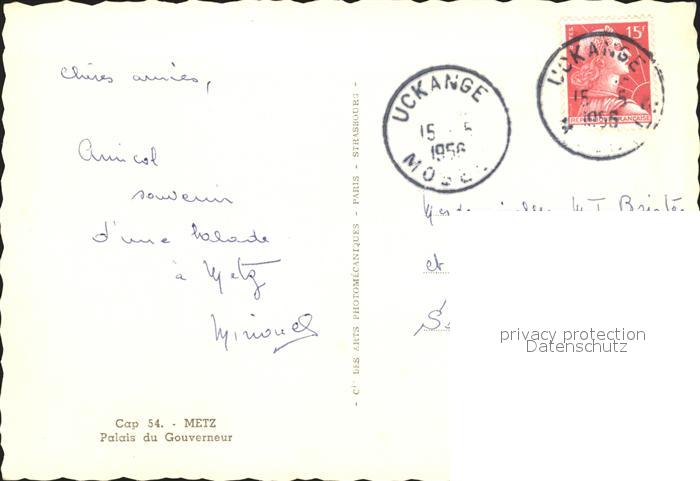 Chères amies,
Amical
souvenir
d'une balade
à Metz
Cap 54. - METZ
Palais du Gouverneur
- Cie DES ARTS PHOTOMÉCANIQUES - PARIS - STRASBOURG -
UCKANGE
15 - 5
1956
MOSELLE
15F
RÉPUBLIQUE FRANÇAISE
UCKANGE
15 - 5
1956
Mesdemoiselles MT
et
S
privacy protection
Datenschutz